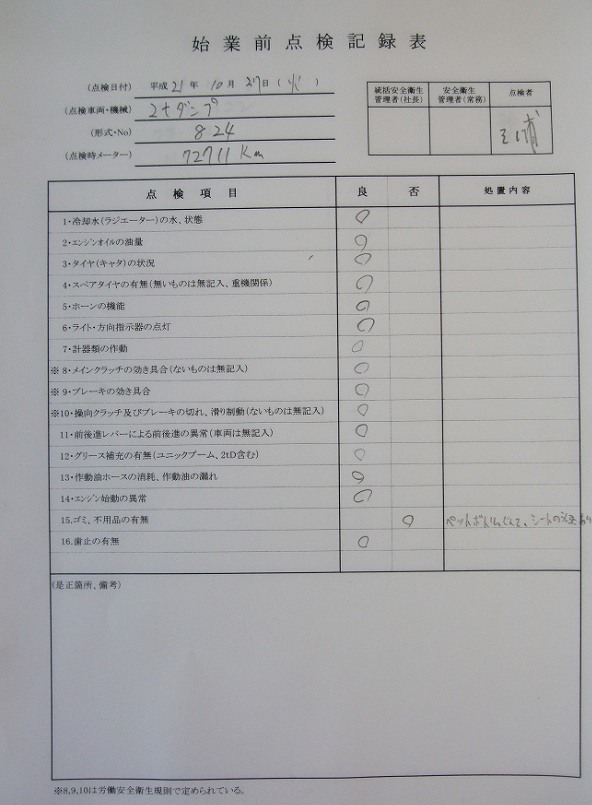 始業前点検記録表
(点検日付) 平成 21 年 10 月 27 日 ( 火 )
(点検車両・機械) 2tダンプ
(形式・No) 824
(点検時メーター) 72711 Km
統括安全衛生管理者(社長) 安全衛生管理者(常務) 点検者
点検項目 良 否 処置内容
1・冷却水(ラジエーター)の水、状態 ○
2・エンジンオイルの油量 ○
3・タイヤ(キャタ)の状況 ○
4・スペアタイヤの有無(無いものは無記入、重機関係) ○
5・ホーンの機能 ○
6・ライト・方向指示器の点灯 ○
7・計器類の作動 ○
※8・メインクラッチの効き具合(ないものは無記入) ○
※9・ブレーキの効き具合 ○
※10・操向クラッチ及びブレーキの切れ、滑り制動(ないものは無記入) ○
11・前後進レバーによる前後進の異常(車両は無記入) ○
12・グリース補充の有無(ユニックブーム、2tD含む) ○
13・作動油ホースの消耗、作動油の漏れ ○
14・エンジン始動の異常 ○
15.ゴミ、不用品の有無 ○ ペットボトル
16.歯止の有無 ○
(是正箇所、備考)
※8,9,10は労働安全衛生規則で定められている。